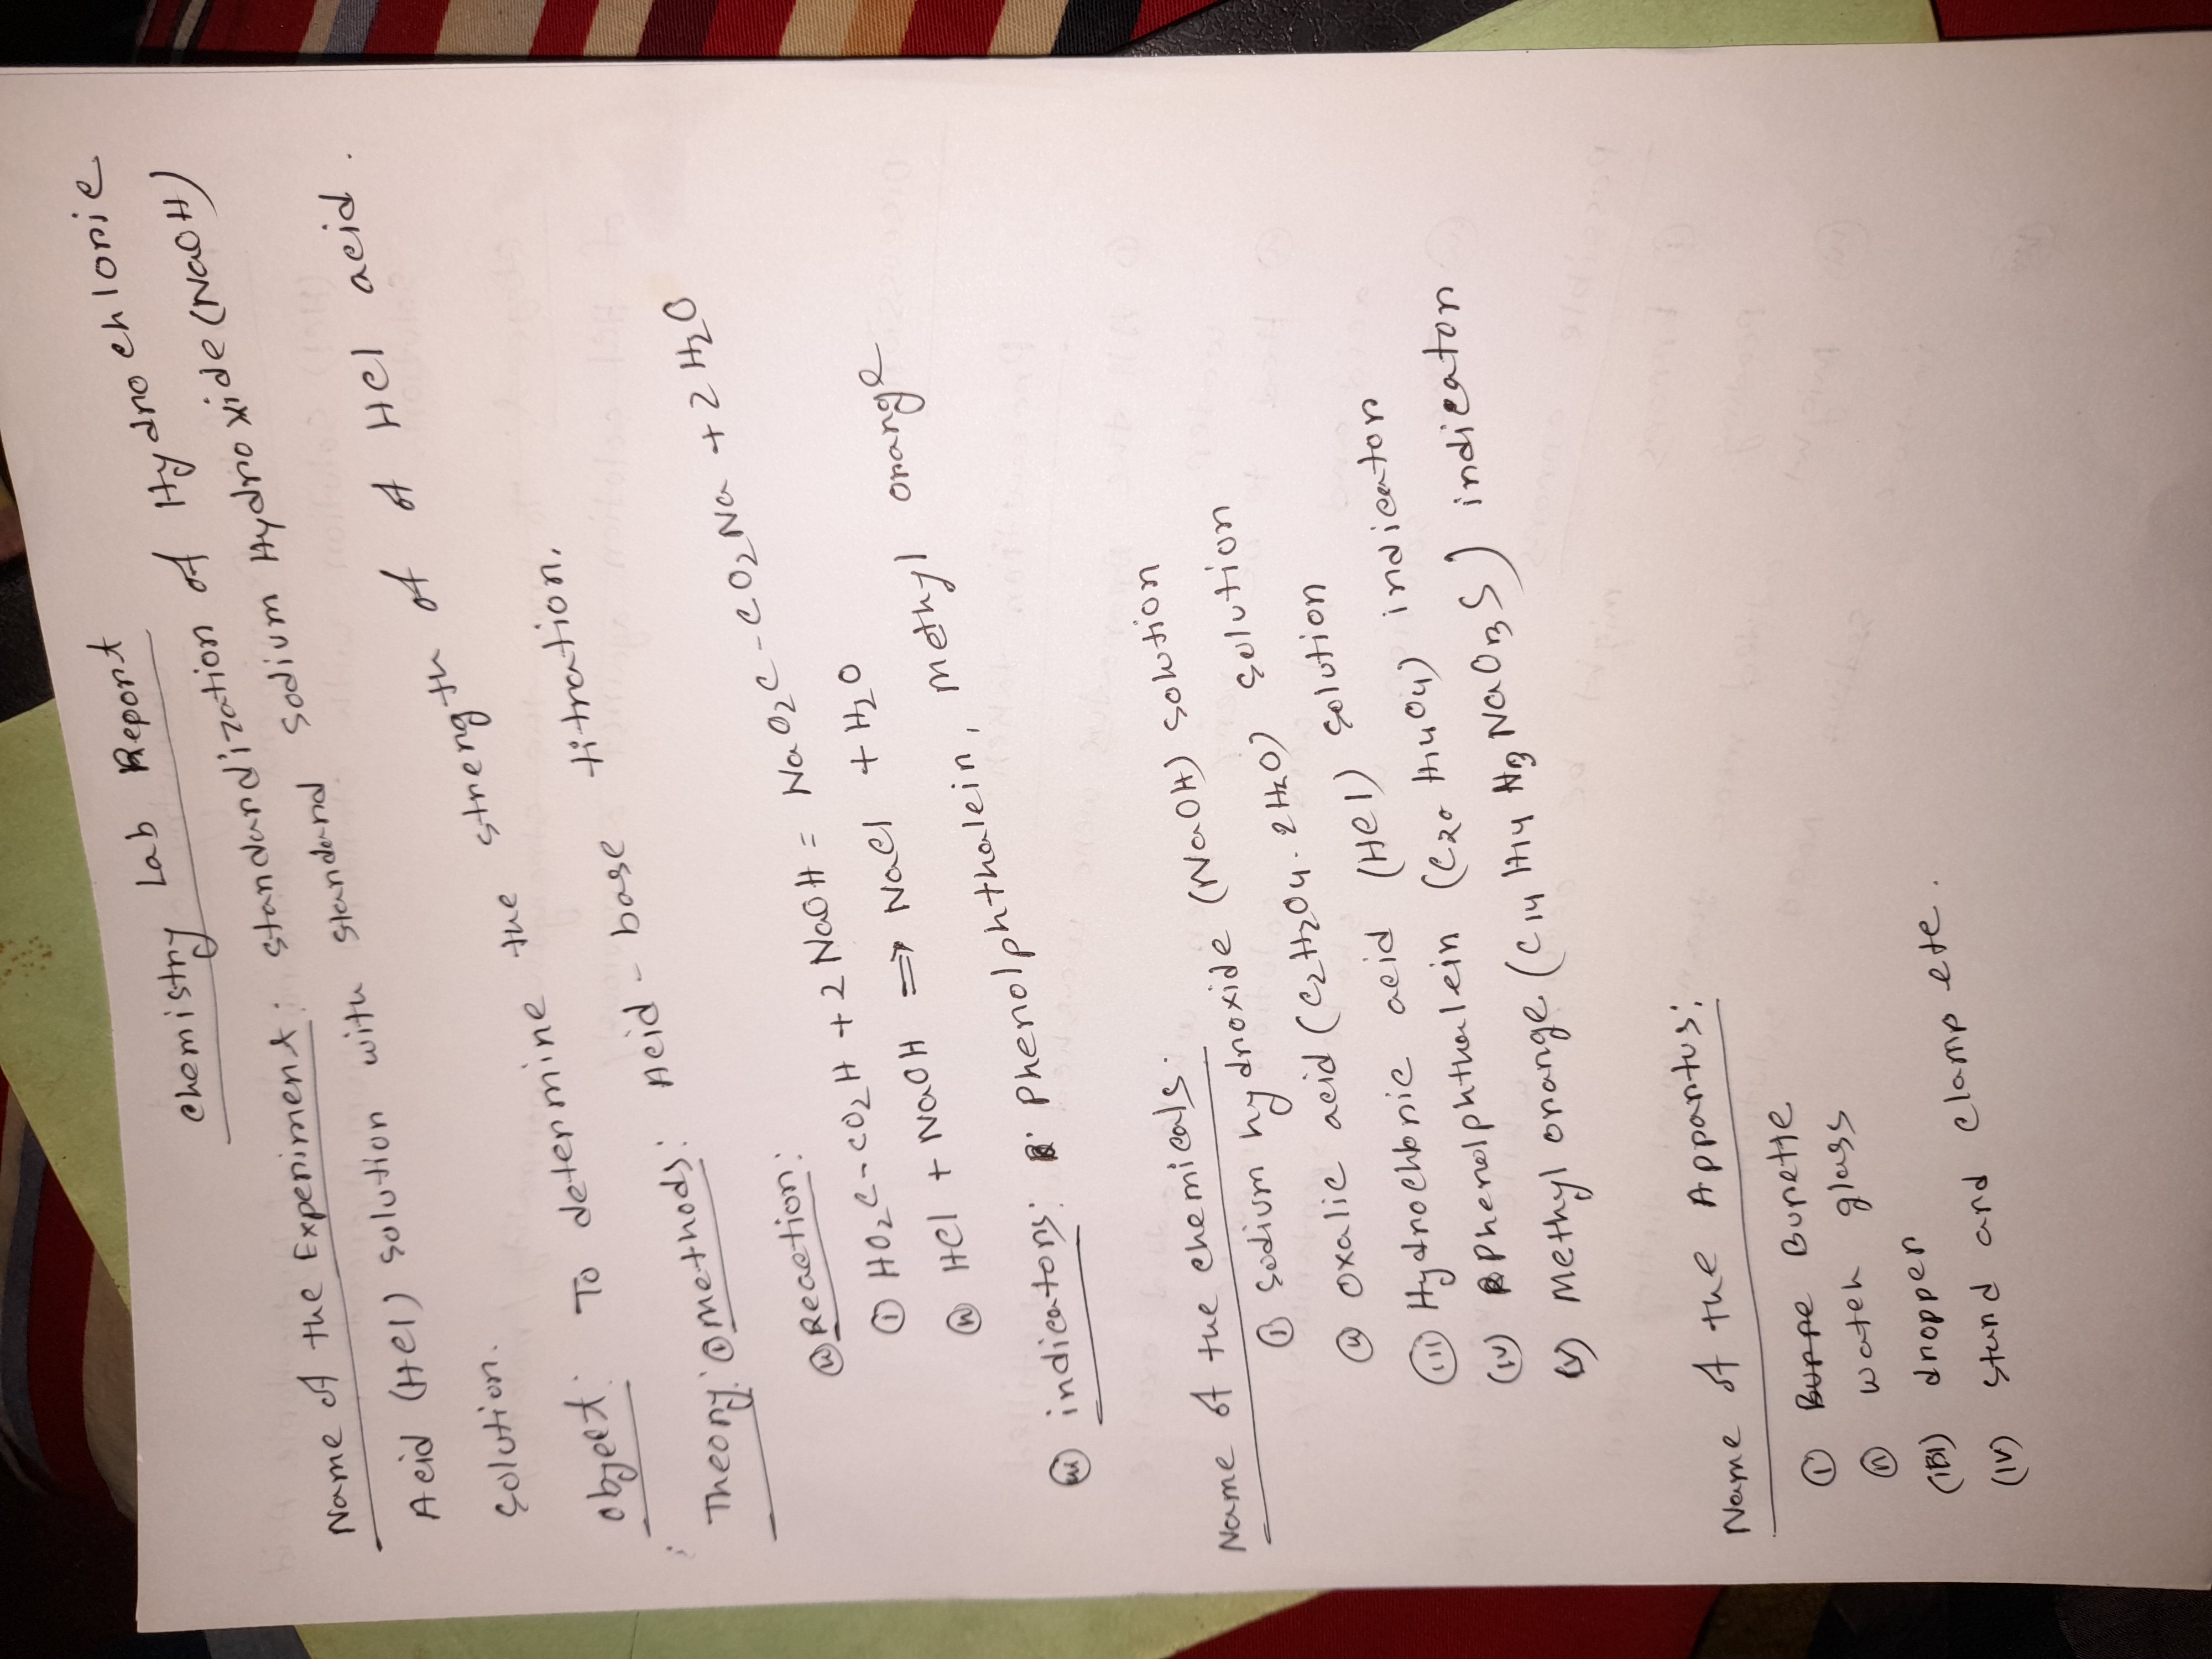 Chemistry Lab Report
Name of the Experiment: Standardization of Hydrochloric
Acid (HCl) solution with standard Sodium Hydroxide (NaOH)
Solution.
Object: To determine the strength of of HCl acid.
Theory: (i) methods: Acid-base titration.
(ii) Reaction:
(i) HO₂C-CO₂H + 2 NaOH = NaO₂C-CO₂Na + 2 H₂O
(ii) HCl + NaOH ⇒ NaCl + H₂O
(iii) indicators: Phenolphthalein, Methyl orange
Name of the chemicals.
(i) Sodium hydroxide (NaOH) solution
(ii) Oxalic acid (C₂H₂O₄. 2H₂O) solution
(iii) Hydrochloric acid (HCl) solution
(iv) Phenolphthalein (C₂₀ H₁₄O₄) indicator
(v) Methyl orange (C₁₄ H₁₄ N₃ NaO₃S) indicator
Name of the Appartus:
(i) Burette
(ii) Watch glass
(iii) dropper
(iv) Stand and clamp etc.